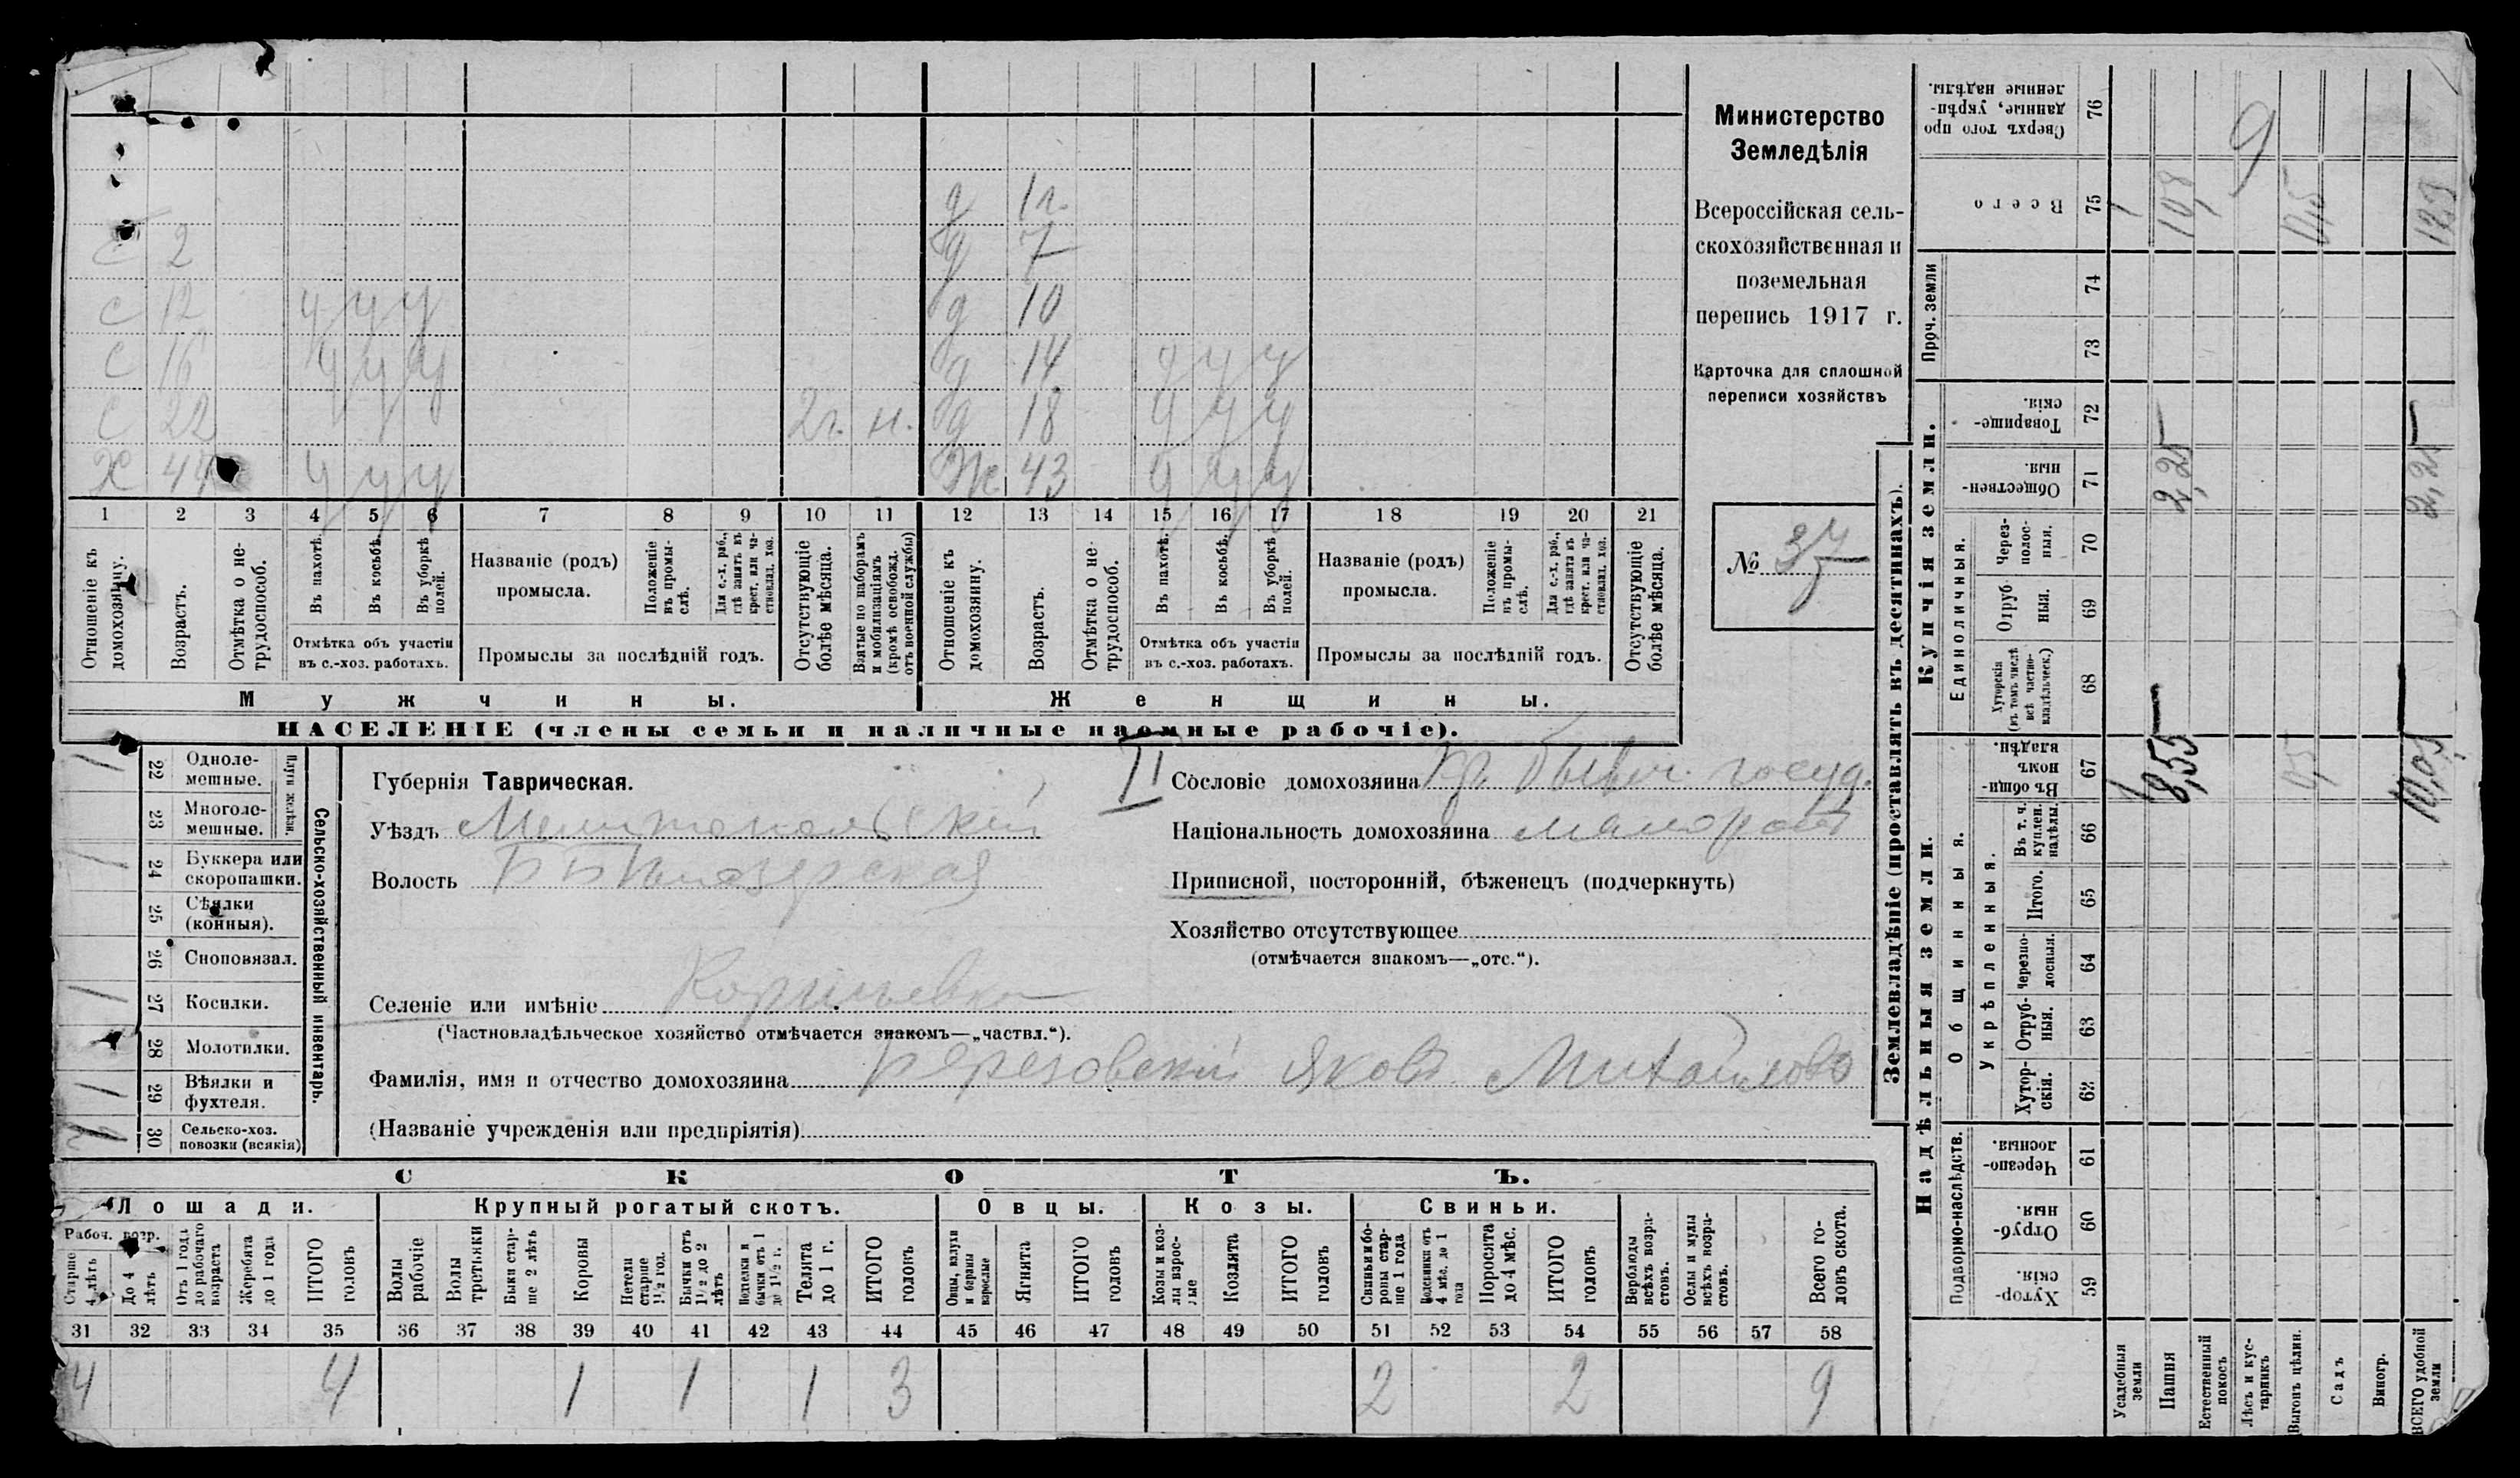 Министерство
Земледѣлія
Всероссійская сель-
скохозяйственная и
поземельная
перепись 1917 г.
Карточка для сплошной
переписи хозяйствъ
№ 37
д 1 г.
с 2 д 7
с 12 ч ч ч д 10
с 16 ч ч ч д 14 ч ч ч
с 22 2 г. н. д 18 ч ч ч
х 44 ч ч ч ж 43 ч ч ч
1 2 3 4 5 6 7 8 9 10 11 12 13 14 15 16 17 18 19 20 21
Отношеніе къ домохозяину.
Возрастъ.
Отмѣтка о не-трудоспособ.
Въ пахотѣ.
Въ косьбѣ.
Въ уборкѣ полей.
Отмѣтка объ участіи
въ с.-хоз. работахъ.
Названіе (родъ)
промысла.
Положеніе въ промы-слѣ.
Для с.-х. раб., гдѣ занятъ въ крест. или ча-стновлад. хоз.
Промыслы за послѣдній годъ.
Отсутствующіе болѣе мѣсяца.
Взятые по наборамъ и мобилизаціямъ (кромѣ освобожд. отъ военной службы)
Отношеніе къ домохозяину.
Возрастъ.
Отмѣтка о не-трудоспособ.
Въ пахотѣ.
Въ косьбѣ.
Въ уборкѣ полей.
Отмѣтка объ участіи
въ с.-хоз. работахъ.
Названіе (родъ)
промысла.
Положеніе въ промы-слѣ.
Для с.-х. раб., гдѣ занята въ крест. или ча-стновлад. хоз.
Промыслы за послѣдній годъ.
Отсутствующіе болѣе мѣсяца.
Мужчины.
Женщины.
НАСЕЛЕНІЕ (члены семьи и наличные наемные рабочіе).
Сельско-хозяйственный инвентарь.
Плуги желѣзн.
1 22 Одноле-мешные.
23 Многоле-мешные.
1 24 Буккера или скоропашки.
25 Сѣялки (конныя).
26 Сноповязал.
1 27 Косилки.
28 Молотилки.
1 29 Вѣялки и фухтеля.
30 Сельско-хоз. повозки (всякія)
II
Губернія Таврическая.
Уѣздъ Мелитопольскій
Волость Б Бѣлозерская
Селеніе или имѣніе
(Частновладѣльческое хозяйство отмѣчается знакомъ—„частвл.“).
Фамилія, имя и отчество домохозяина Березовскій Яковъ Михайлов
(Названіе учрежденія или предпріятія)
Сословіе домохозяина кр. бывш. госуд.
Національность домохозяина малоросъ
Приписной, посторонній, бѣженецъ (подчеркнуть)
Хозяйство отсутствующее
(отмѣчается знакомъ—„отс.“).
СКОТЪ.
Лошади. Крупный рогатый скотъ. Овцы. Козы. Свиньи.
Рабоч. возр.
Старше 4 лѣтъ
До 4 лѣтъ
Отъ 1 года до рабочаго возраста
Жеребята до 1 года
ИТОГО головъ
Волы рабочіе
Волы третьяки
Быки стар-ше 2 лѣтъ
Коровы
Нетели старше 1½ год.
Бычки отъ 1½ до 2 лѣтъ
Нетелки и бычки отъ 1 до 1½ г.
Телята до 1 г.
ИТОГО головъ
Овцы, валухи и бараны взрослые
Ягнята
ИТОГО головъ
Козы и коз-лы взрос-лые
Козлята
ИТОГО головъ
Свиньи и бо-ровы стар-ше 1 года
Подсвинки отъ 4 мѣс. до 1 года
Поросята до 4 мѣс.
ИТОГО головъ
Верблюды всѣхъ возра-стовъ.
Ослы и мулы всѣхъ возра-стовъ.
Всего го-ловъ скота.
31 32 33 34 35 36 37 38 39 40 41 42 43 44 45 46 47 48 49 50 51 52 53 54 55 56 57 58
4 4 1 1 1 3 2 2 9
Землевладѣніе (проставлять въ десятинахъ).
Надѣльныя земли.
Купчія земли.
Проч. земли
Подворно-наслѣдств.
Общинныя.
Укрѣпленныя.
Единоличныя.
Хутор-скія. 59
Отруб-ныя. 60
Черезпо-лосныя. 61
Хутор-скія. 62
Отруб-ныя. 63
Черезпо-лосныя. 64
Итого. 65
Въ т. ч. куплен. надѣлы. 66
Въ общи-номъ владѣн. 67
Хуторскія (въ томъ числѣ всѣ частно-владѣльческ.) 68
Отруб-ныя. 69
Через-полос-ныя. 70
Обществен-ныя. 71
Товарище-скія. 72
73
74
Всего 75
Сверхъ того про-данные, укрѣп-ленные надѣлы. 76
Усадебныя земли
Пашня
Естественный покосъ
Лѣсъ и кус-тарникъ
Выгонъ цѣлин.
Садъ
Виногр.
ВСЕГО удобной земли
1 8,55 0,5 10,05
2,25 2,25
1 10,8 0,5
9